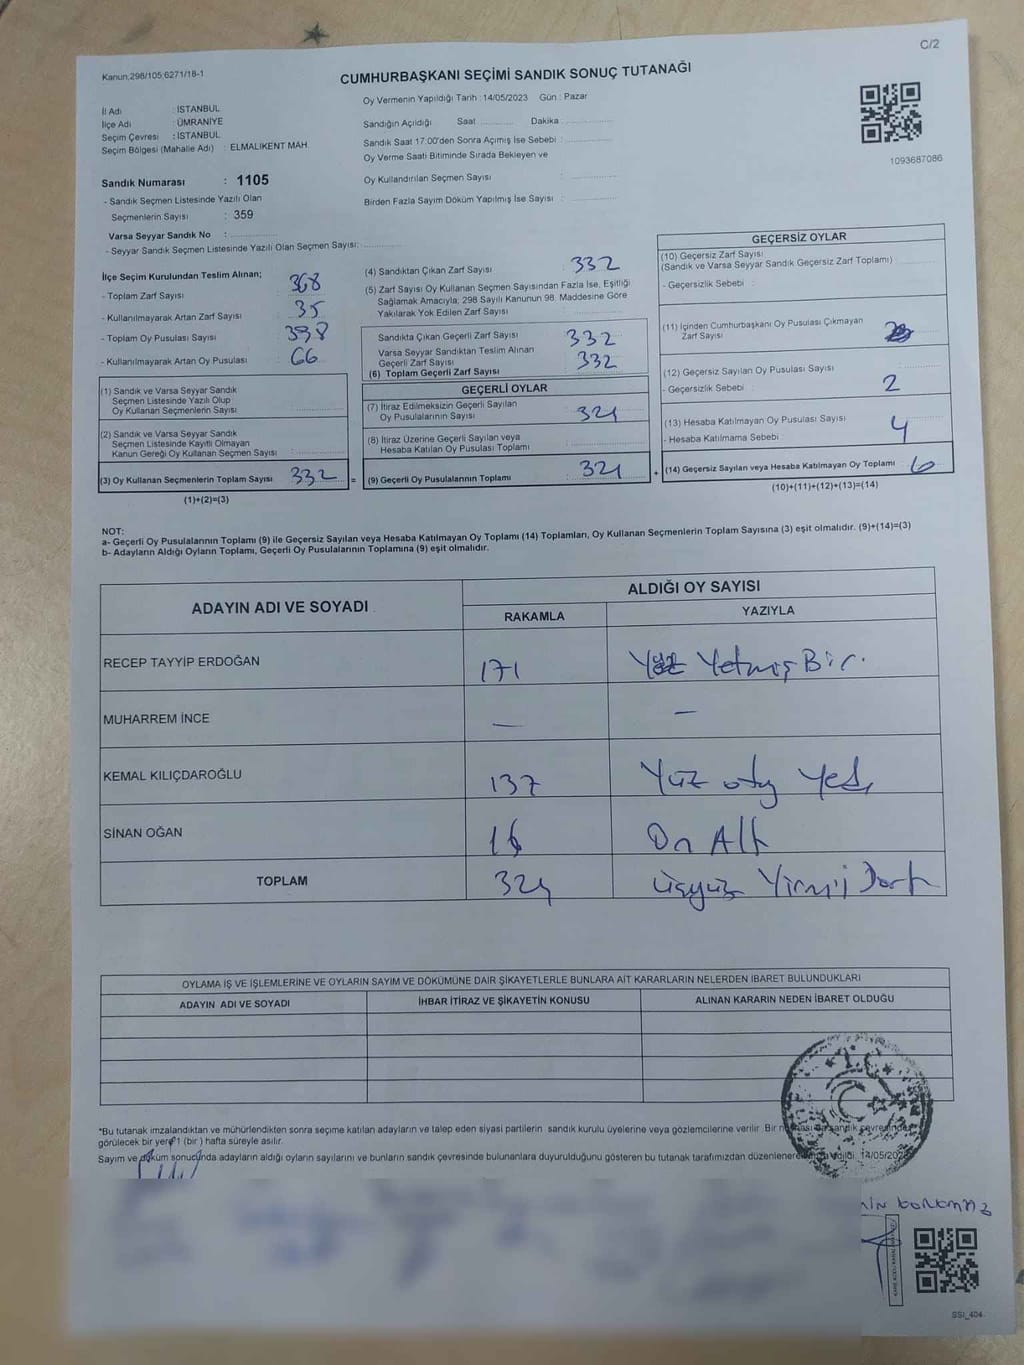 C/2
Kanun;298/105;6271/18-1
CUMHURBAŞKANI SEÇİMİ SANDIK SONUÇ TUTANAĞI
Oy Vermenin Yapıldığı Tarih : 14/05/2023 Gün : Pazar
İl Adı : İSTANBUL
İlçe Adı : ÜMRANİYE
Seçim Çevresi : İSTANBUL
Seçim Bölgesi (Mahalle Adı) : ELMALIKENT MAH.
Sandığın Açıldığı Saat Dakika
Sandık Saat 17:00'den Sonra Açımış İse Sebebi :
Oy Verme Saati Bitiminde Sırada Bekleyen ve
Oy Kullandırılan Seçmen Sayısı :
Birden Fazla Sayım Döküm Yapılmış İse Sayısı :
1093687086
Sandık Numarası : 1105
- Sandık Seçmen Listesinde Yazılı Olan
Seçmenlerin Sayısı : 359
Varsa Seyyar Sandık No :
- Seyyar Sandık Seçmen Listesinde Yazılı Olan Seçmen Sayısı:
İlçe Seçim Kurulundan Teslim Alınan;
- Toplam Zarf Sayısı 368
- Kullanılmayarak Artan Zarf Sayısı 35
- Toplam Oy Pusulası Sayısı 398
- Kullanılmayarak Artan Oy Pusulası 66
(1) Sandık ve Varsa Seyyar Sandık
Seçmen Listesinde Yazılı Olup
Oy Kullanan Seçmenlerin Sayısı :
(2) Sandık ve Varsa Seyyar Sandık
Seçmen Listesinde Kayıtlı Olmayan
Kanun Gereği Oy Kullanan Seçmen Sayısı :
(3) Oy Kullanan Seçmenlerin Toplam Sayısı : 332 =
(1)+(2)=(3)
(4) Sandıktan Çıkan Zarf Sayısı : 332
(5) Zarf Sayısı Oy Kullanan Seçmen Sayısından Fazla İse, Eşitliği
Sağlamak Amacıyla; 298 Sayılı Kanunun 98. Maddesine Göre
Yakılarak Yok Edilen Zarf Sayısı :
Sandıkta Çıkan Geçerli Zarf Sayısı : 332
Varsa Seyyar Sandıktan Teslim Alınan
Geçerli Zarf Sayısı
(6) Toplam Geçerli Zarf Sayısı 332
GEÇERLİ OYLAR
(7) İtiraz Edilmeksizin Geçerli Sayılan
Oy Pusulalarının Sayısı : 324
(8) İtiraz Üzerine Geçerli Sayılan veya
Hesaba Katılan Oy Pusulası Toplamı :
(9) Geçerli Oy Pusulalarının Toplamı : 324 +
GEÇERSİZ OYLAR
(10) Geçersiz Zarf Sayısı
(Sandık ve Varsa Seyyar Sandık Geçersiz Zarf Toplamı) :
- Geçersizlik Sebebi :
(11) İçinden Cumhurbaşkanı Oy Pusulası Çıkmayan
Zarf Sayısı
(12) Geçersiz Sayılan Oy Pusulası Sayısı : 2
- Geçersizlik Sebebi :
(13) Hesaba Katılmayan Oy Pusulası Sayısı : 4
- Hesaba Katılmama Sebebi :
(14) Geçersiz Sayılan veya Hesaba Katılmayan Oy Toplamı : 6
(10)+(11)+(12)+(13)=(14)
NOT:
a- Geçerli Oy Pusulalarının Toplamı (9) ile Geçersiz Sayılan veya Hesaba Katılmayan Oy Toplamı (14) Toplamları, Oy Kullanan Seçmenlerin Toplam Sayısına (3) eşit olmalıdır. (9)+(14)=(3)
b- Adayların Aldığı Oyların Toplamı, Geçerli Oy Pusulalarının Toplamına (9) eşit olmalıdır.
ADAYIN ADI VE SOYADI ALDIĞI OY SAYISI
RAKAMLA YAZIYLA
RECEP TAYYİP ERDOĞAN 171 Yüz Yetmiş Bir.
MUHARREM İNCE — —
KEMAL KILIÇDAROĞLU 137 Yüz otuz Yedi
SİNAN OĞAN 16 On Altı
TOPLAM 324 üçyüz Yirmi Dört
OYLAMA İŞ VE İŞLEMLERİNE VE OYLARIN SAYIM VE DÖKÜMÜNE DAİR ŞİKAYETLERLE BUNLARA AİT KARARLARIN NELERDEN İBARET BULUNDUKLARI
ADAYIN ADI VE SOYADI İHBAR İTİRAZ VE ŞİKAYETİN KONUSU ALINAN KARARIN NEDEN İBARET OLDUĞU
T.C.
*Bu tutanak imzalandıktan ve mühürlendikten sonra seçime katılan adayların ve talep eden siyasi partilerin sandık kurulu üyelerine veya gözlemcilerine verilir. Bir nüshası da sandık çevresinde
görülecek bir yere 1 (bir ) hafta süreyle asılır.
Sayım ve döküm sonucunda adayların aldığı oyların sayılarını ve bunların sandık çevresinde bulunanlara duyurulduğunu gösteren bu tutanak tarafımızdan düzenlenerek 14/05/2023
SSI_404